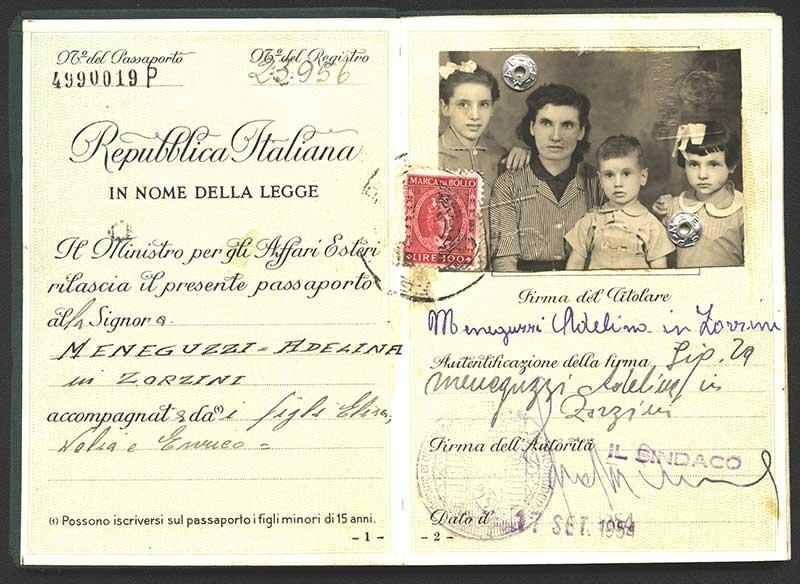 Nº del Passaporto
4990019 P
Nº del Registro
23956
Repubblica Italiana
IN NOME DELLA LEGGE
Il Ministro per gli Affari Esteri
rilascia il presente passaporto
alla Signora
MENEGUZZI = ADELINA
in ZORZINI
accompagnata da (1) i figli Elisa,
e Enrico =
(1) Possono iscriversi sul passaporto i figli minori di 15 anni.
- 1 -
MARCA DA BOLLO
LIRE 100
Firma del Titolare
Meneguzzi Adelina in Zorzini
Autentificazione della firma
Meneguzzi Adelina in
Zorzini
Firma dell'Autorità
IL SINDACO
Dato il 17 SET. 1954
- 2 -